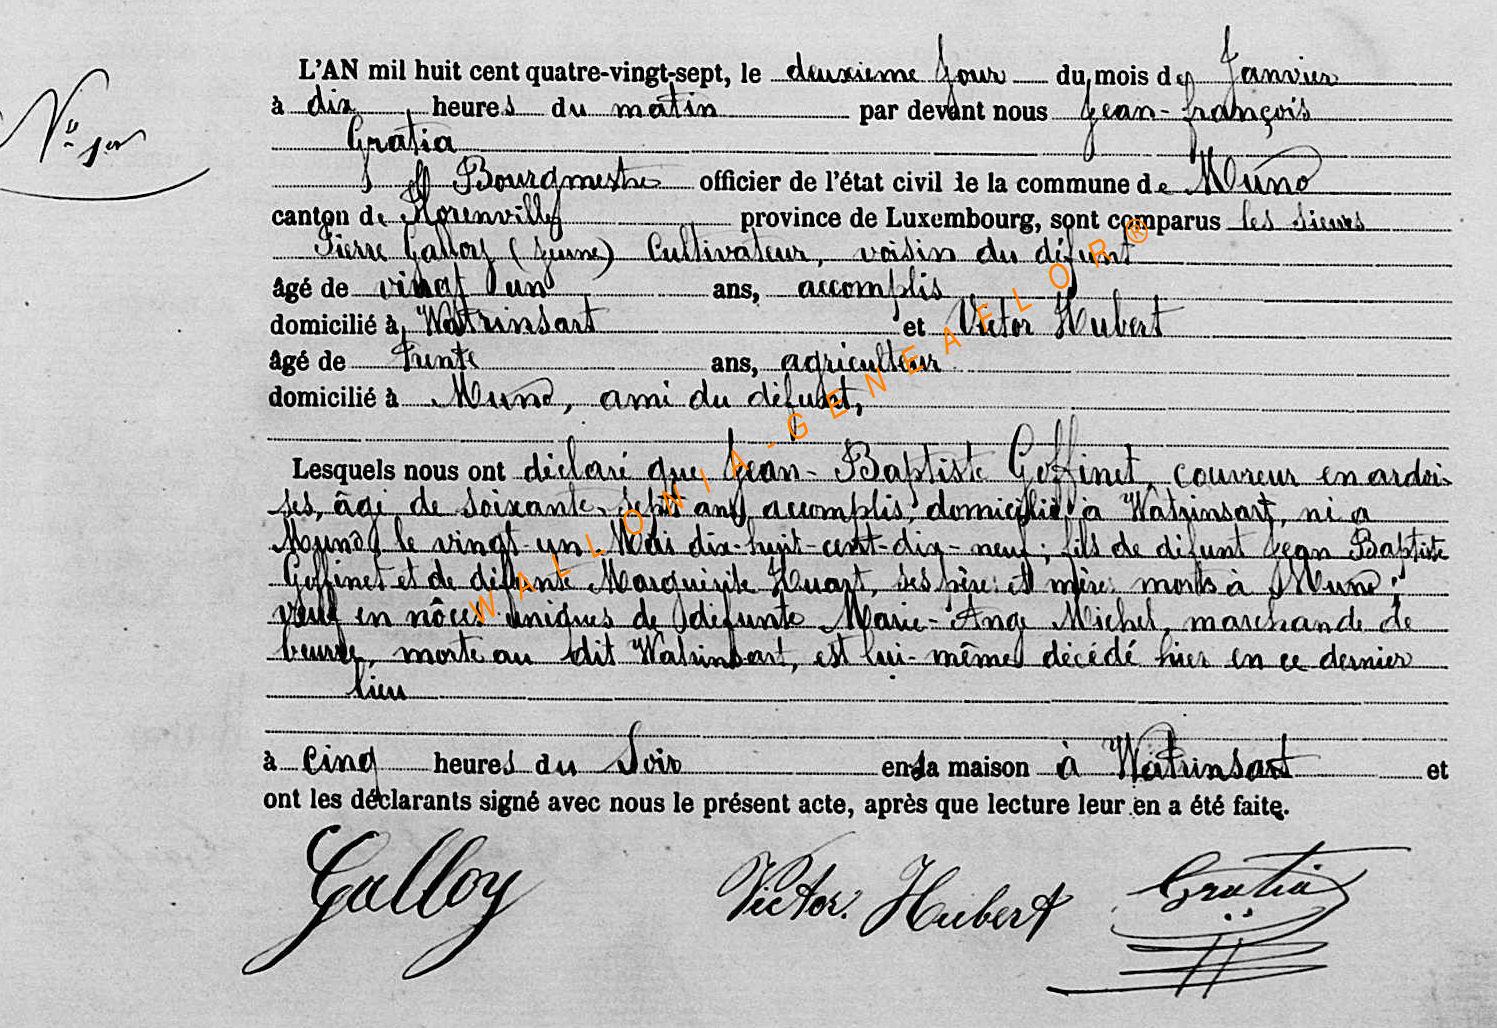 L'AN mil huit cent quatre-vingt-sept, le deuxième jour du mois de Janvier
N° 1er
à dix heures du matin par devant nous Jean-françois
Gratia
Bourgmestre officier de l'état civil de la commune de Muno
canton de Florenville province de Luxembourg, sont comparus les sieurs
Pierre Galloy (jeune) Cultivateur, voisin du défunt
âgé de vingt un ans, accomplis
domicilié à Watrinsart et Victor Hubert
âgé de trente ans, agriculteur
domicilié à Muno, ami du défunt,
Lesquels nous ont déclaré que Jean-Baptiste Goffinet, couvreur en ardoi-
ses, âgé de soixante-sept ans accomplis, domicilié à Watrinsart, né à
Muno le vingt-un Mai dix-huit-cent-dix-neuf; fils de défunt Jean Baptiste
Goffinet et de défunte Marguerite Huart, ses père et mère morts à Muno;
veuf en nôces uniques de défunte Marie-Ange Michel, marchande de
beurre, morte au dit Watrinsart, est lui-même décédé hier en ce dernier
lieu
à cinq heures du soir en sa maison à Watrinsart et
ont les déclarants signé avec nous le présent acte, après que lecture leur en a été faite.
Galloy Victor Hubert Gratia
WALLONIA-GENEAFLOR®